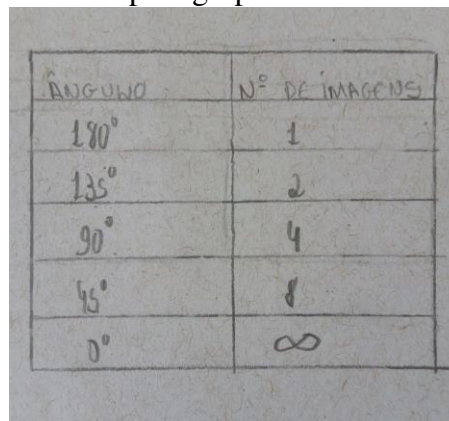 ÂNGULO Nº DE IMAGENS
180° 1
135° 2
90° 4
45° 8
0° ∞